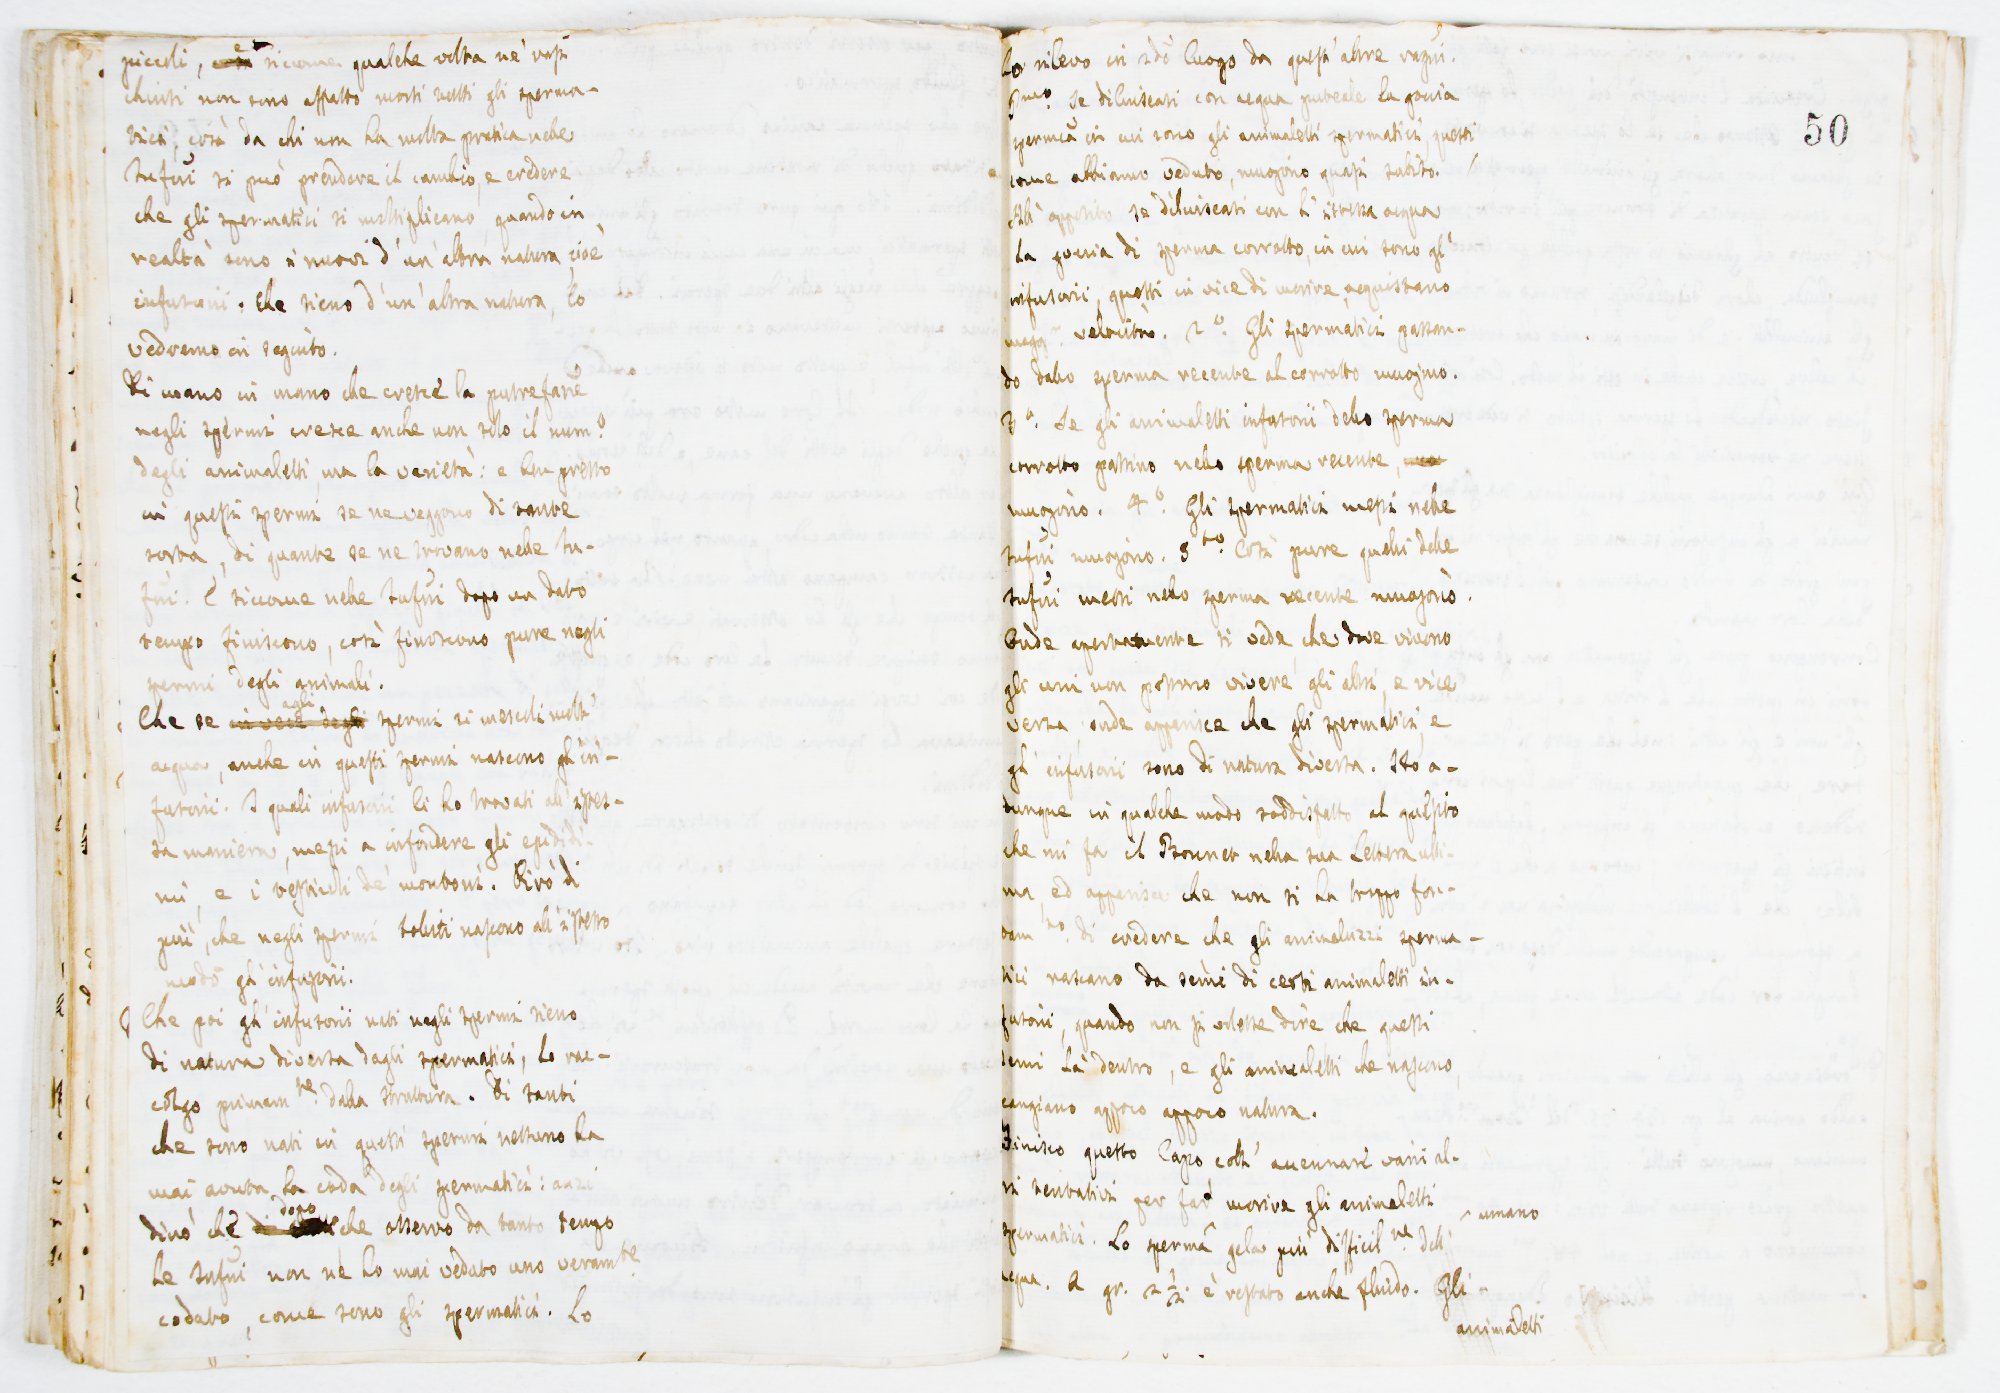 piccoli, e siccome qualche volta ne' vasi
chiusi non sono affatto morti tutti gli sperma-
tici, così da chi non ha molta pratica nelle
Infusi si può prendere il cambio, e credere
che gli spermatici si moltiplicano, quando in
realtà sono i nuovi d'un'altra natura, cioè
infusorii. Che sieno d'un'altra natura, lo
vedremo in seguito.
Di mano in mano che cresce la putrefaz.e
negli spermi cresce anche non solo il num.o
degli animaletti, ma la varietà: e ben presto
in questi spermi se ne veggono di tante
sorta, di quante se ne trovano nelle In-
fus.i. E siccome nelle Infusi dopo un dato
tempo finiscono, così finiscono pure negli
spermi degli animali.
Che se in vece degli agli spermi si mescoli molt'
acqua, anche in questi spermi nascono gl'in-
fusorii. I quali infusorii li ho trovati all'istes-
sa maniera, messi a infondere gli epididi-
mi, e i testicoli de' montoni. Dirò di
più, che negli spermi bolliti nascono all'istesso
modo gl'infusorii.
Che poi gl'infusorii nati negli spermi sieno
di natura diversa dagli spermatici, lo rac-
colgo primam.te dalla struttura. Di tanti
che sono nati in questi spermi nessuno ha
mai avuta la coda degli spermatici: anzi
dirò che dopo che osservo da tanto tempo
le Infusi non ne ho mai veduto uno veram.te
codato, come sono gli spermatici. Lo
50
Lo rilevo in 2do luogo da quest'altre ragni.
Pmo. Se diluiscasi con acqua puteale la goccia
spermca in cui sono gli animaletti spermatici questi
come abbiamo veduto, muojono quasi subito.
All'opposito se diluiscasi con l'istessa acqua
la goccia di sperma corrotto, in cui sono gl'
infusorii, questi in vice di morire, acquistano
magg.r velocità. 2o. Gli spermatici passan-
do dallo sperma recente al corrotto muojono.
3o. Se gli animaletti infusorii dello sperma
corrotto passino nello sperma recente,
muojono. 4o. Gli spermatici messi nelle
Infusi muojono. 5to. Così pure quelli delle
Infusi messi nello sperma recente muojono.
Onde apertamente si vede che dove vivono
gli uni non possono vivere gli altri, e vice
versa onde apparisce che gli spermatici, e
gl'infusorii sono di natura diversa. Ho a-
dunque in qualche modo soddisfatto al quesito
che mi fa il Bonnet nella sua Lettera ulti-
ma, ed apparisce che non si ha troppo fon-
dam.to di credere che gli animaluzzi sperma-
tici nascano da semi di certi animaletti in-
fusorii, quando non si volesse dire che questi
semi là dentro, e gli animaletti che nascono,
cangiano appoco appoco natura.
Finisco questo Capo coll'accennare varii al-
tri tentativi per far morire gli animaletti
spermatici. Lo sperma umano gela più difficil.te dell'
acqua. A gr. 2 1/2. è restato anche fluido. Gli
animaletti